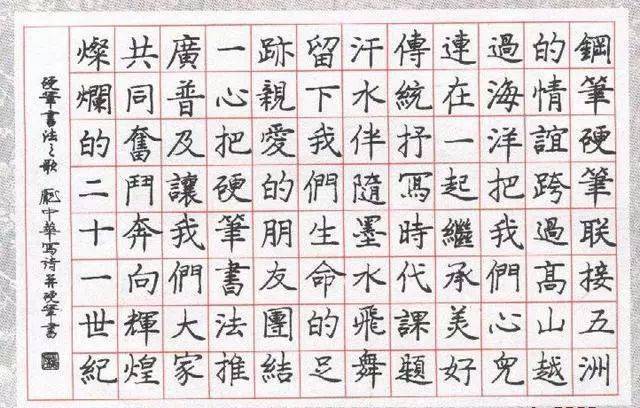 鋼筆硬筆联接五洲
的情誼跨過高山越
過海洋把我們心兒
連在一起繼承美好
傳統抒寫時代課題
汗水伴隨墨水飛舞
留下我們生命的足
跡親愛的朋友團結
一心把硬筆書法推
廣普及讓我們大家
共同奮鬥奔向輝煌
燦爛的二十一世紀
硬筆書法之歌 龐中華寫诗并硬筆書